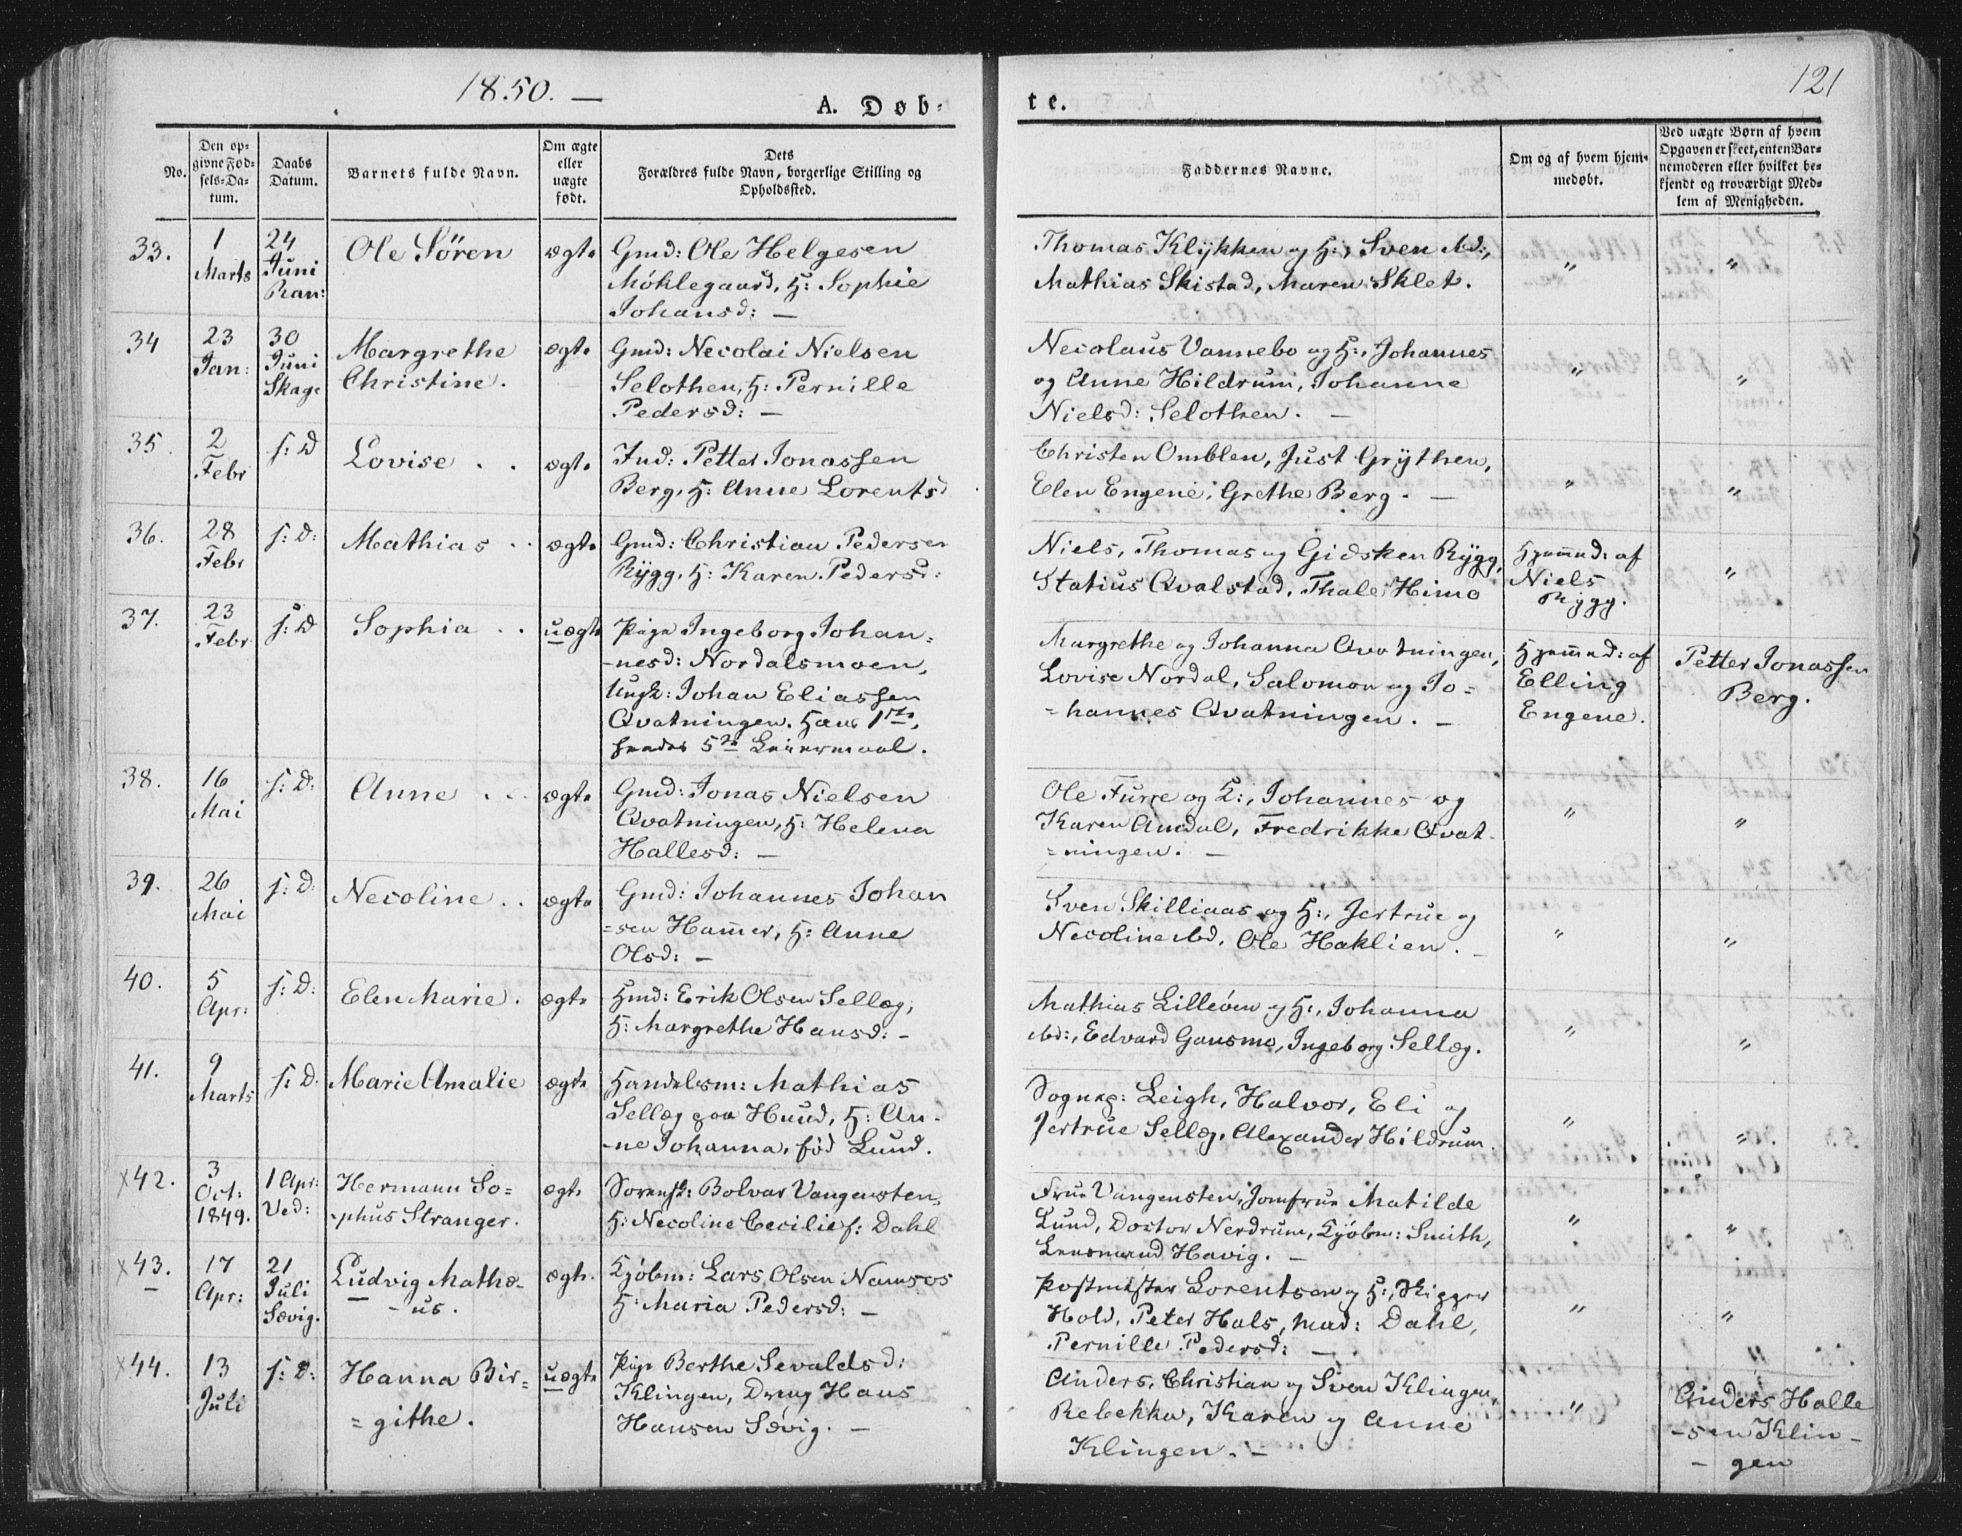 1850. —
121
A. Døb-
te.
No.
Den op-
givne Fød-
sels-Da-
tum.
Daabs
Datum.
Barnets fulde Navn.
Om ægte
eller
uægte
født.
Dets
Forældres fulde Navn, borgerlige Stilling og
Opholdssted.
Faddernes Navne.
Om og af hvem hjem-
medøbt.
Ved uægte Børn af hvem
Opgaven er skeet, enten Bar-
nemoderen eller hvilket be-
kjendt og troværdigt Med-
lem af Menigheden.
33.
1
Marts
24
Juni
Ran:
Ole Sören
ægte
Gmd: Ole Helgesen
Möklegaard, H: Sophie
Johansd: —
Thomas Klykken og H:, Sven ibd:,
Mathias Skistad, Maren Sklet.
"
"
34
23
Jan:
30
Juni
Skage
Margrethe
Christine.
ægte
Gmd: Necolai Nielsen
Selothen, H: Pernille
Pedersd: —
Necolaus Vannebo og H:, Johannes
og Anne Hildrum, Johanne
Nielsd: Selothen. —
"
"
35.
2
Febr
s: D
Lovise . .
ægte
Ind: Petter Jonassen
Berg, H: Anne Lorentsd
Christen Omblen, Just Grythen,
Elen Engene, Grethe Berg. —
"
"
36.
28
Febr
s: D:
Mathias . .
ægte
Gmd: Christian Pedersen
Rygg, H: Karen Pedersd:
Niels, Thomas og Gidsken Rygg,
Statius Qvalstad, Thale Himo
Hjemmed: af
Niels
Rygg.
"
37.
23
Febr
s: D
Sophia . .
uægte
Pige Ingeborg Johan-
-nesd: Nordalsmoen,
Ungk: Johan Eliassen
Qvatningen. Hans 1ste,
hendes 5te Leiermaal.
Margrethe og Johanna Qvatningen,
Lovise Nordal, Salomon og Jo-
-hannes Qvatningen. —
Hjemmed: af
Elling
Engene.
Petter Jonassen
Berg.
38.
16
Mai
s: D:
Anne . . .
ægte
Gmd: Jonas Nielsen
Qvatningen, H: Helena
Hallesd: —
Ole Furre og H:, Johannes og
Karen Amdal, Fredrikke Qvat-
-ningen. —
"
"
39.
26
Mai
s: D:
Necoline . .
ægte
Gmd: Johannes Johan
-sen Hammer, H: Anne
Olsd: —
Sven Skilliaas og H:, Jertrue og
Necoline ibd, Ole Haklien. —
"
"
40.
5
Apr:
s: D:
Elen Marie.
ægte
Hmd: Erik Olsen Sellæg,
H: Margrethe Hansd: —
Mathias Lilleöen og H:, Johanna
ibd:, Edvard Gansmo, Ingeborg Sellæg.
"
"
41.
9
Marts
s: D.
Marie Amalie
ægte
Handelsm: Mathias
Sellæg paa Hund, H: An-
-ne Johanna, fød Lund.
Sognep: Leigh, Halvor, Eli og
Jertrue Sellæg, Alexander Hildrum.
"
"
x42.
3
Oct:
1849.
1 Apr:
Ved:
Hermann So-
-phus Stranger.
ægte
Sorensk: Bolvar Vangensten,
H: Necoline Cecilie f: Dahl
Frue Vangensten, Jomfrue Matilde
Lund, Doctor Nerdrum, Kjöbm: Smith,
Lensmand Havig. —
"
"
x43.
17
Apr:
21
Juli
Sævig.
Ludvig Mathæ-
-us.
ægte.
Kjöbm: Lars Olsen Namsos
H: Maria Pedersd: —
Postmester Lorentsen og H:, Skipper
Hold, Peter Hals, Mad: Dahl,
Pernille Pedersd: —
"
"
x44.
13
Juli
s: D:
Hanna Bir-
-githe.
uægte
Pige Berthe Sevaldsd:
Klingen, Dreng Hans
Hansen Sævig. —
Anders, Christian og Sven Klingen,
Rebekka, Karen og Anne
Klingen. —
"
Anders Halle
-sen Klin-
-gen